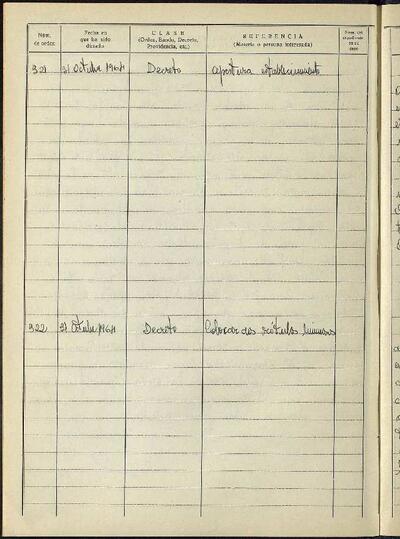 Núm. de orden
Fecha en que ha sido dictado
CLASE
(Orden, Bando, Decreto, Providencia, etc.)
REFERENCIA
(Materia o persona interesada)
Núm. del
321 21 Octubre 1964 Decreto apertura establecimiento
322 21 Octubre 1964 Decreto Colocar dos rótulos luminosos